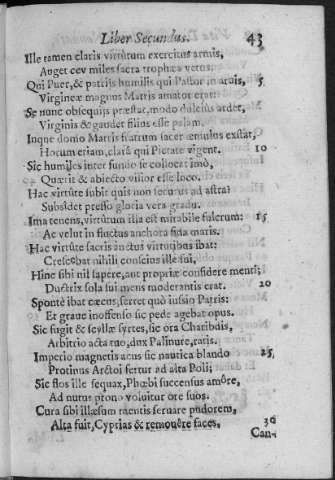 Liber Secundus. 43
Ille tamen claris virtùtum exercitus armis,
Auget ceu miles sacra trophæa vetus.
Qui Puer, & patrijs humilis qui Pastor in aruis, 5
Virgineæ magnus Matris amator erat:
Se nunc obsequijs præstat, modò dulciùs ardet,
Virginis & gaudet filius esse palam.
Inque domo Matris fratrum sacer æmulus exstat,
Horum etiam, clarâ qui Pietate vigent. 10
Sic humiles inter fundo se collocat imò,
Quærit & abiecto vilior esse loco.
Hac virtùte subit quis non securus ad astra?
Subsidet presso gloria vera gradu.
Ima tenens, virtùtum illa est mirabile fulcrum: 15
Ac velut in fluctus anchora fida maris.
Hac virtùte sacris auctus virtutibus ibat:
Crescebat nihili conscius ille sui,
Hinc sibi nil sapere, aut propriæ considere menti;
Ductrix sola sui mens moderantis erat. 20
Spontè ibat cæcus, ferret quò iussio Patris:
Et graue inoffenso sic pede agebat opus.
Sic fugit & scyllæ syrtes, sic ora Charibdis,
Arbitrio acta tuo, dux Palinure, ratis.
Imperio magnetis acus sic nautica blando 25
Protinus Arctoi fertur ad alta Poli;
Sic flos ille sequax, Phœbi succensus amôre,
Ad nutus prono voluitur ore suos.
Cura sibi illæsum mentis seruare pudorem,
Alta fuit, Cyprias & remouêre faces, 30
Can-